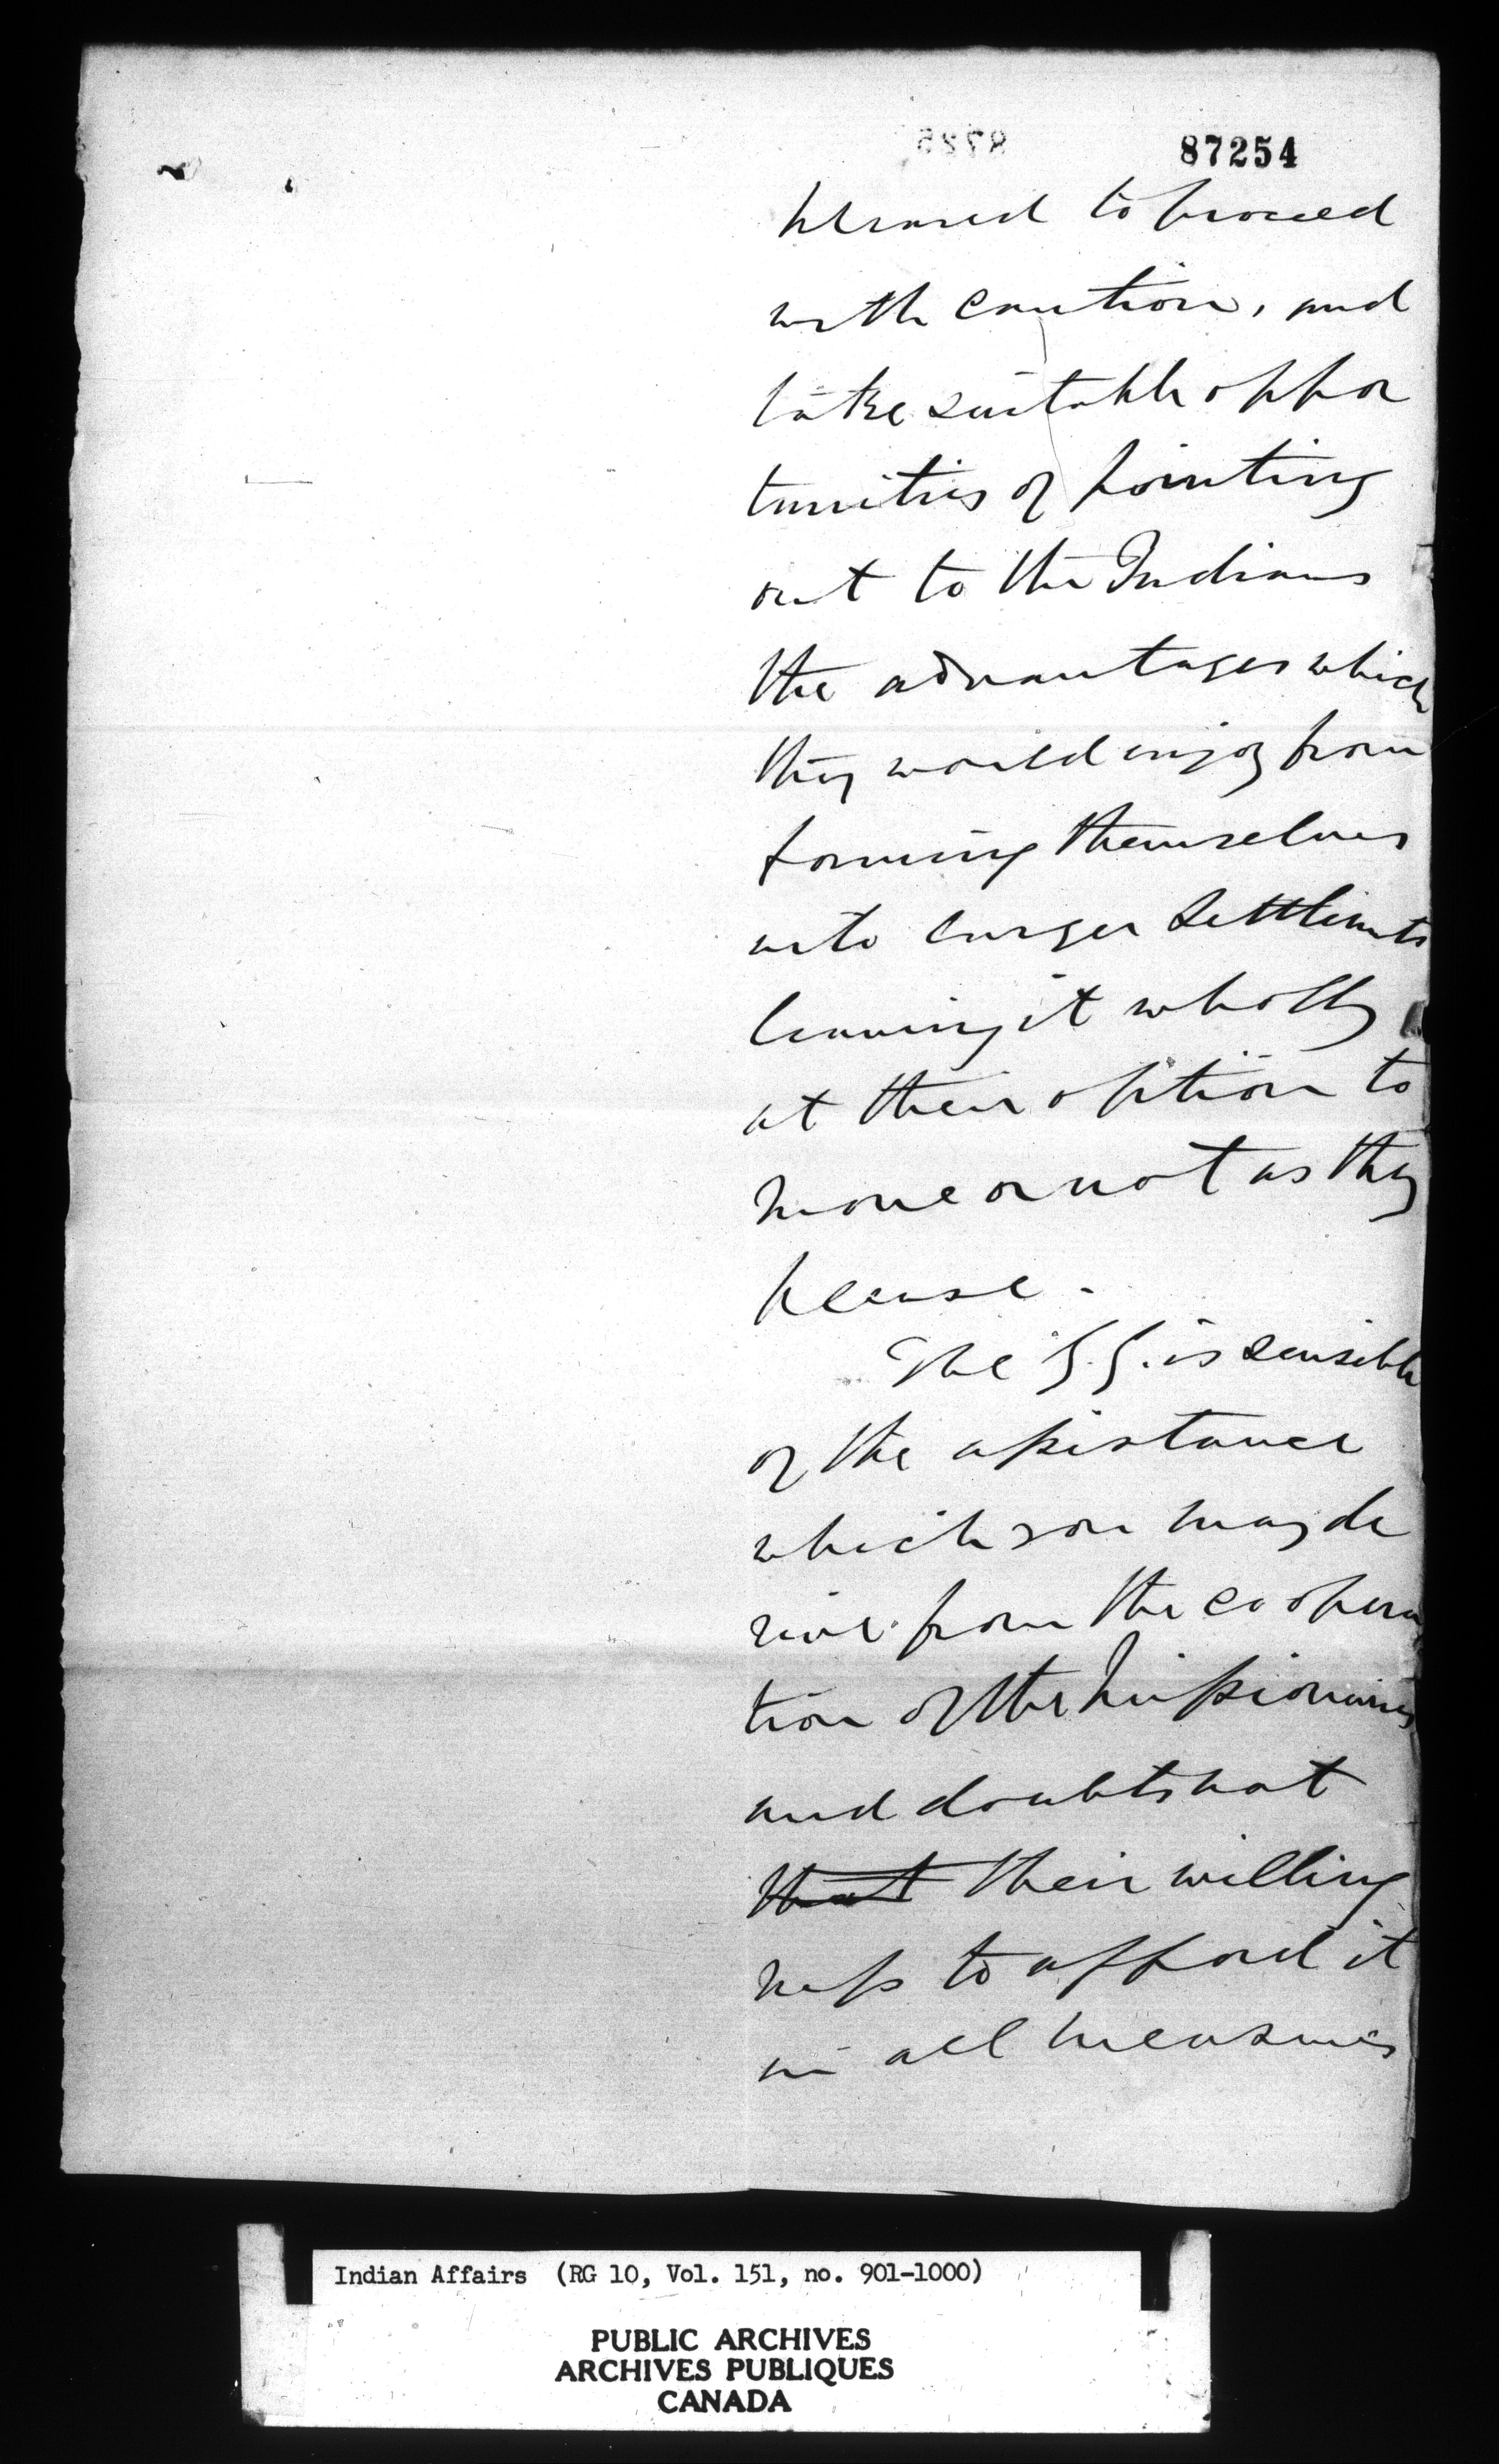 87254
pleased to proceed
with caution, and
take suitable oppor
tunities of pointing
out to the Indians
the advantages which
they would enjoy from
forming themselves
into larger Settlements
leaving it wholly
at their option to
move or not as they
please.
The G.G. is sensible
of the assistance
which you may de
rive from the coopera
tion of the Missionaries
and doubts not
that their willing
ness to afford it
in all measures
Indian Affairs (RG 10, Vol. 151, no. 901-1000)
PUBLIC ARCHIVES
ARCHIVES PUBLIQUES
CANADA